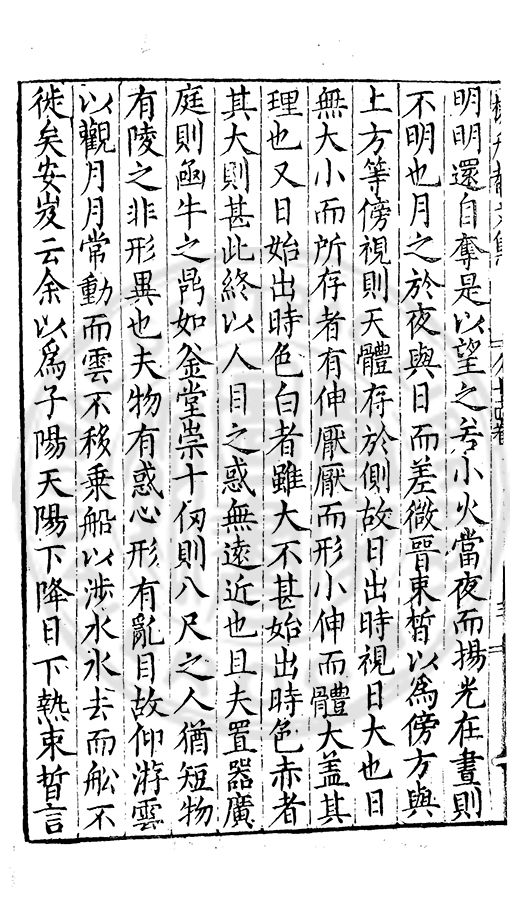 明明還自奪是以望之若小火當夜而揚光在晝則
不明也月之於夜與日而差微晉束晳以為傍方與
上方等傍視則天體存於側故日出時視日大也日
無大小而所存者有伸厭厭而形小伸而體大盖其
理也又日始出時色白者雖大不甚始出時色赤者
其大則甚此終以人目之惑無遠近也且夫置器廣
庭則凾牛之鼎如釡堂崇十仞則八尺之人猶短物
有陵之非形異也夫物有惑心形有亂目故仰游雲
以觀月月常動而雲不移乗船以涉水水去而船不
徙矣安岌云余以為子陽天陽下降日下熱束晳言